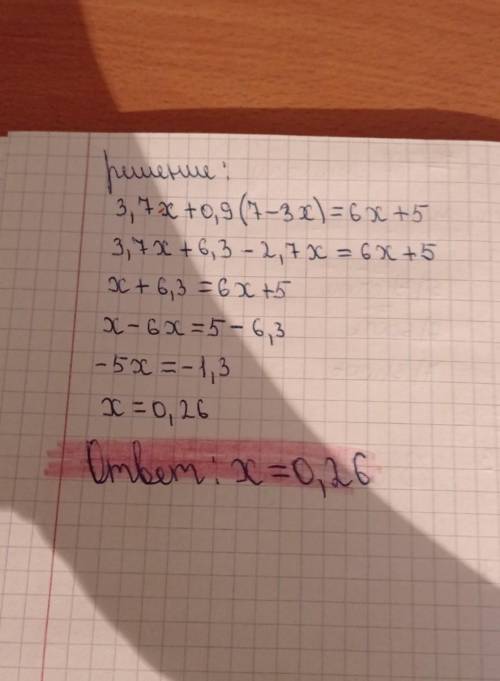 решение:
3,7x+0,9(7-3x)=6x+5
3,7x+6,3-2,7x=6x+5
x+6,3=6x+5
x-6x=5-6,3
-5x=-1,3
x=0,26
Ответ: x=0,26